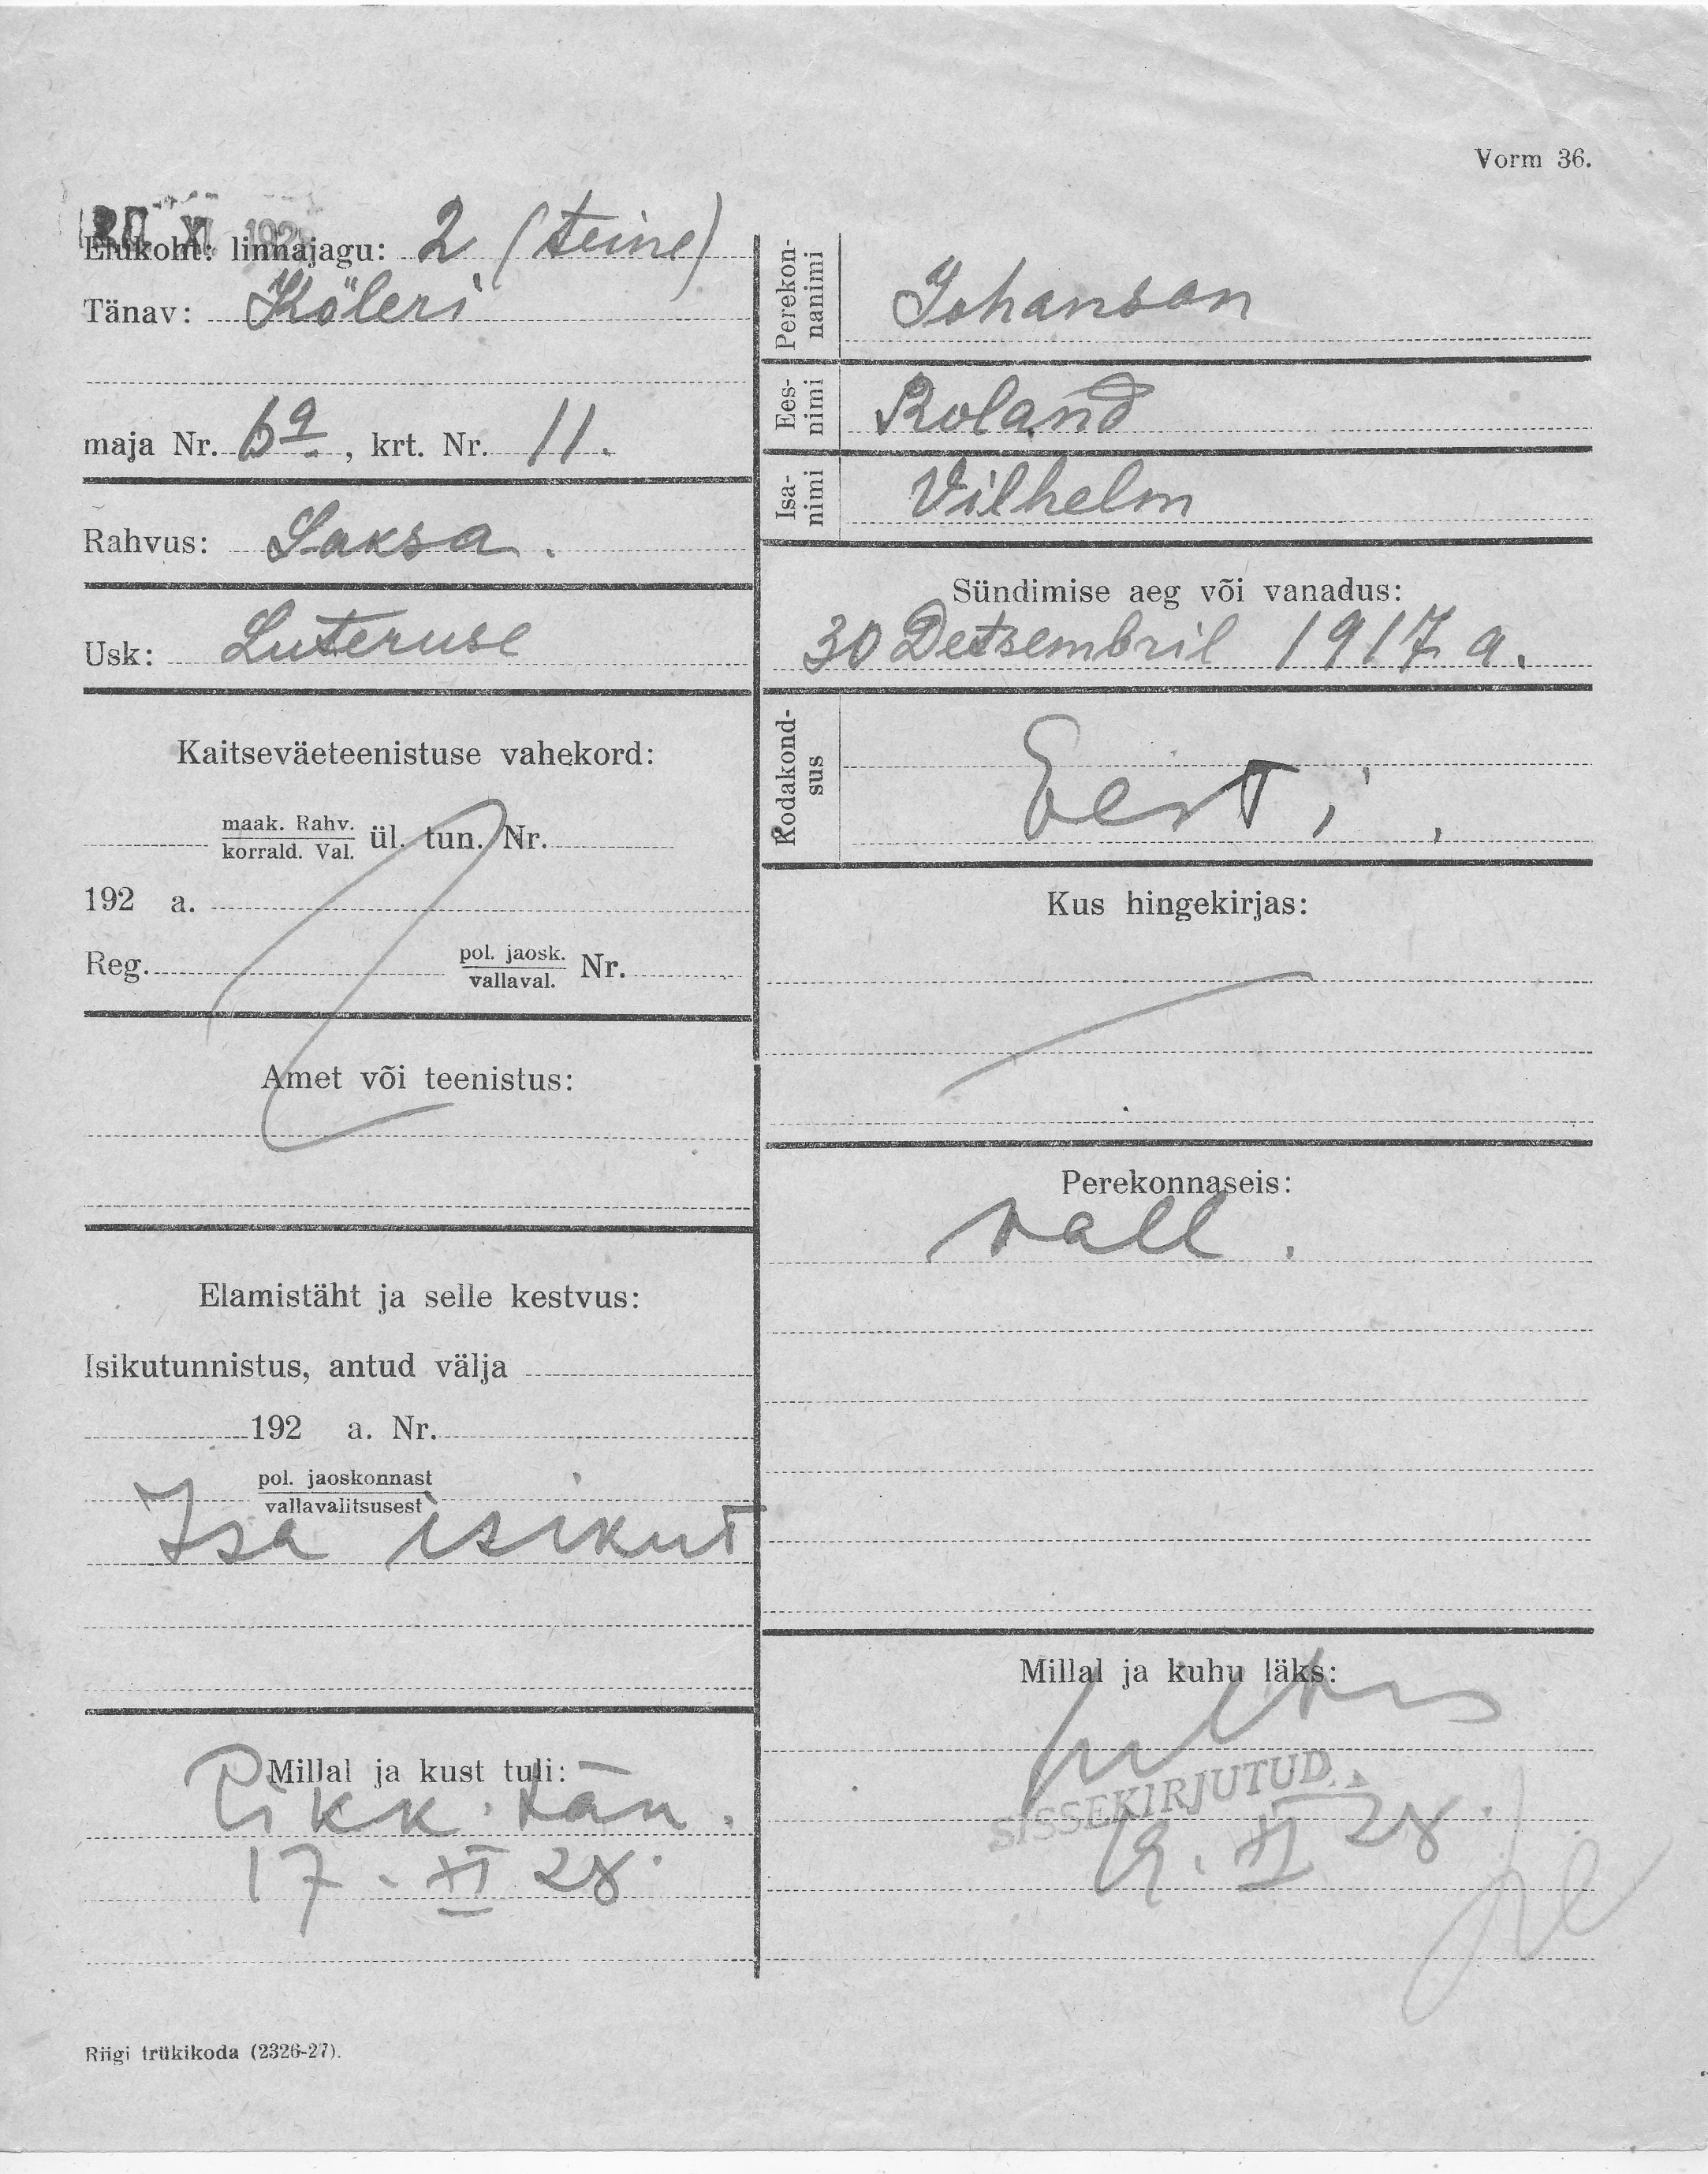 Vorm 36.
20 XI 192
Elukoht: linnajagu: 2 (teine)
Tänav: Köleri
maja Nr. 6a, krt. Nr. 11.
Rahvus: Saksa.
Usk: Luteruse
Kaitseväeteenistuse vahekord:
maak. Rahv.
korrald. Val. ül. tun. Nr.
192 a.
Reg. pol. jaosk. Nr.
vallaval.
Amet või teenistus:
Elamistäht ja selle kestvus:
Isikutunnistus, antud välja
192 a. Nr.
pol. jaoskonnast
vallavalitsusest
Isa isikut
Millal ja kust tuli:
Pikk tän.
17. XI 28.
Perekon-
nanimi Johanson
Ees-
nimi Roland
Isa-
nimi Vilhelm
Sündimise aeg või vanadus:
30 Detsembril 1917 a.
Kodakond-
sus Eesti
Kus hingekirjas:
Perekonnaseis:
vall.
Millal ja kuhu läks:
SISSEKIRJUTUD
19. XI 28.
Riigi trükikoda (2326-27).